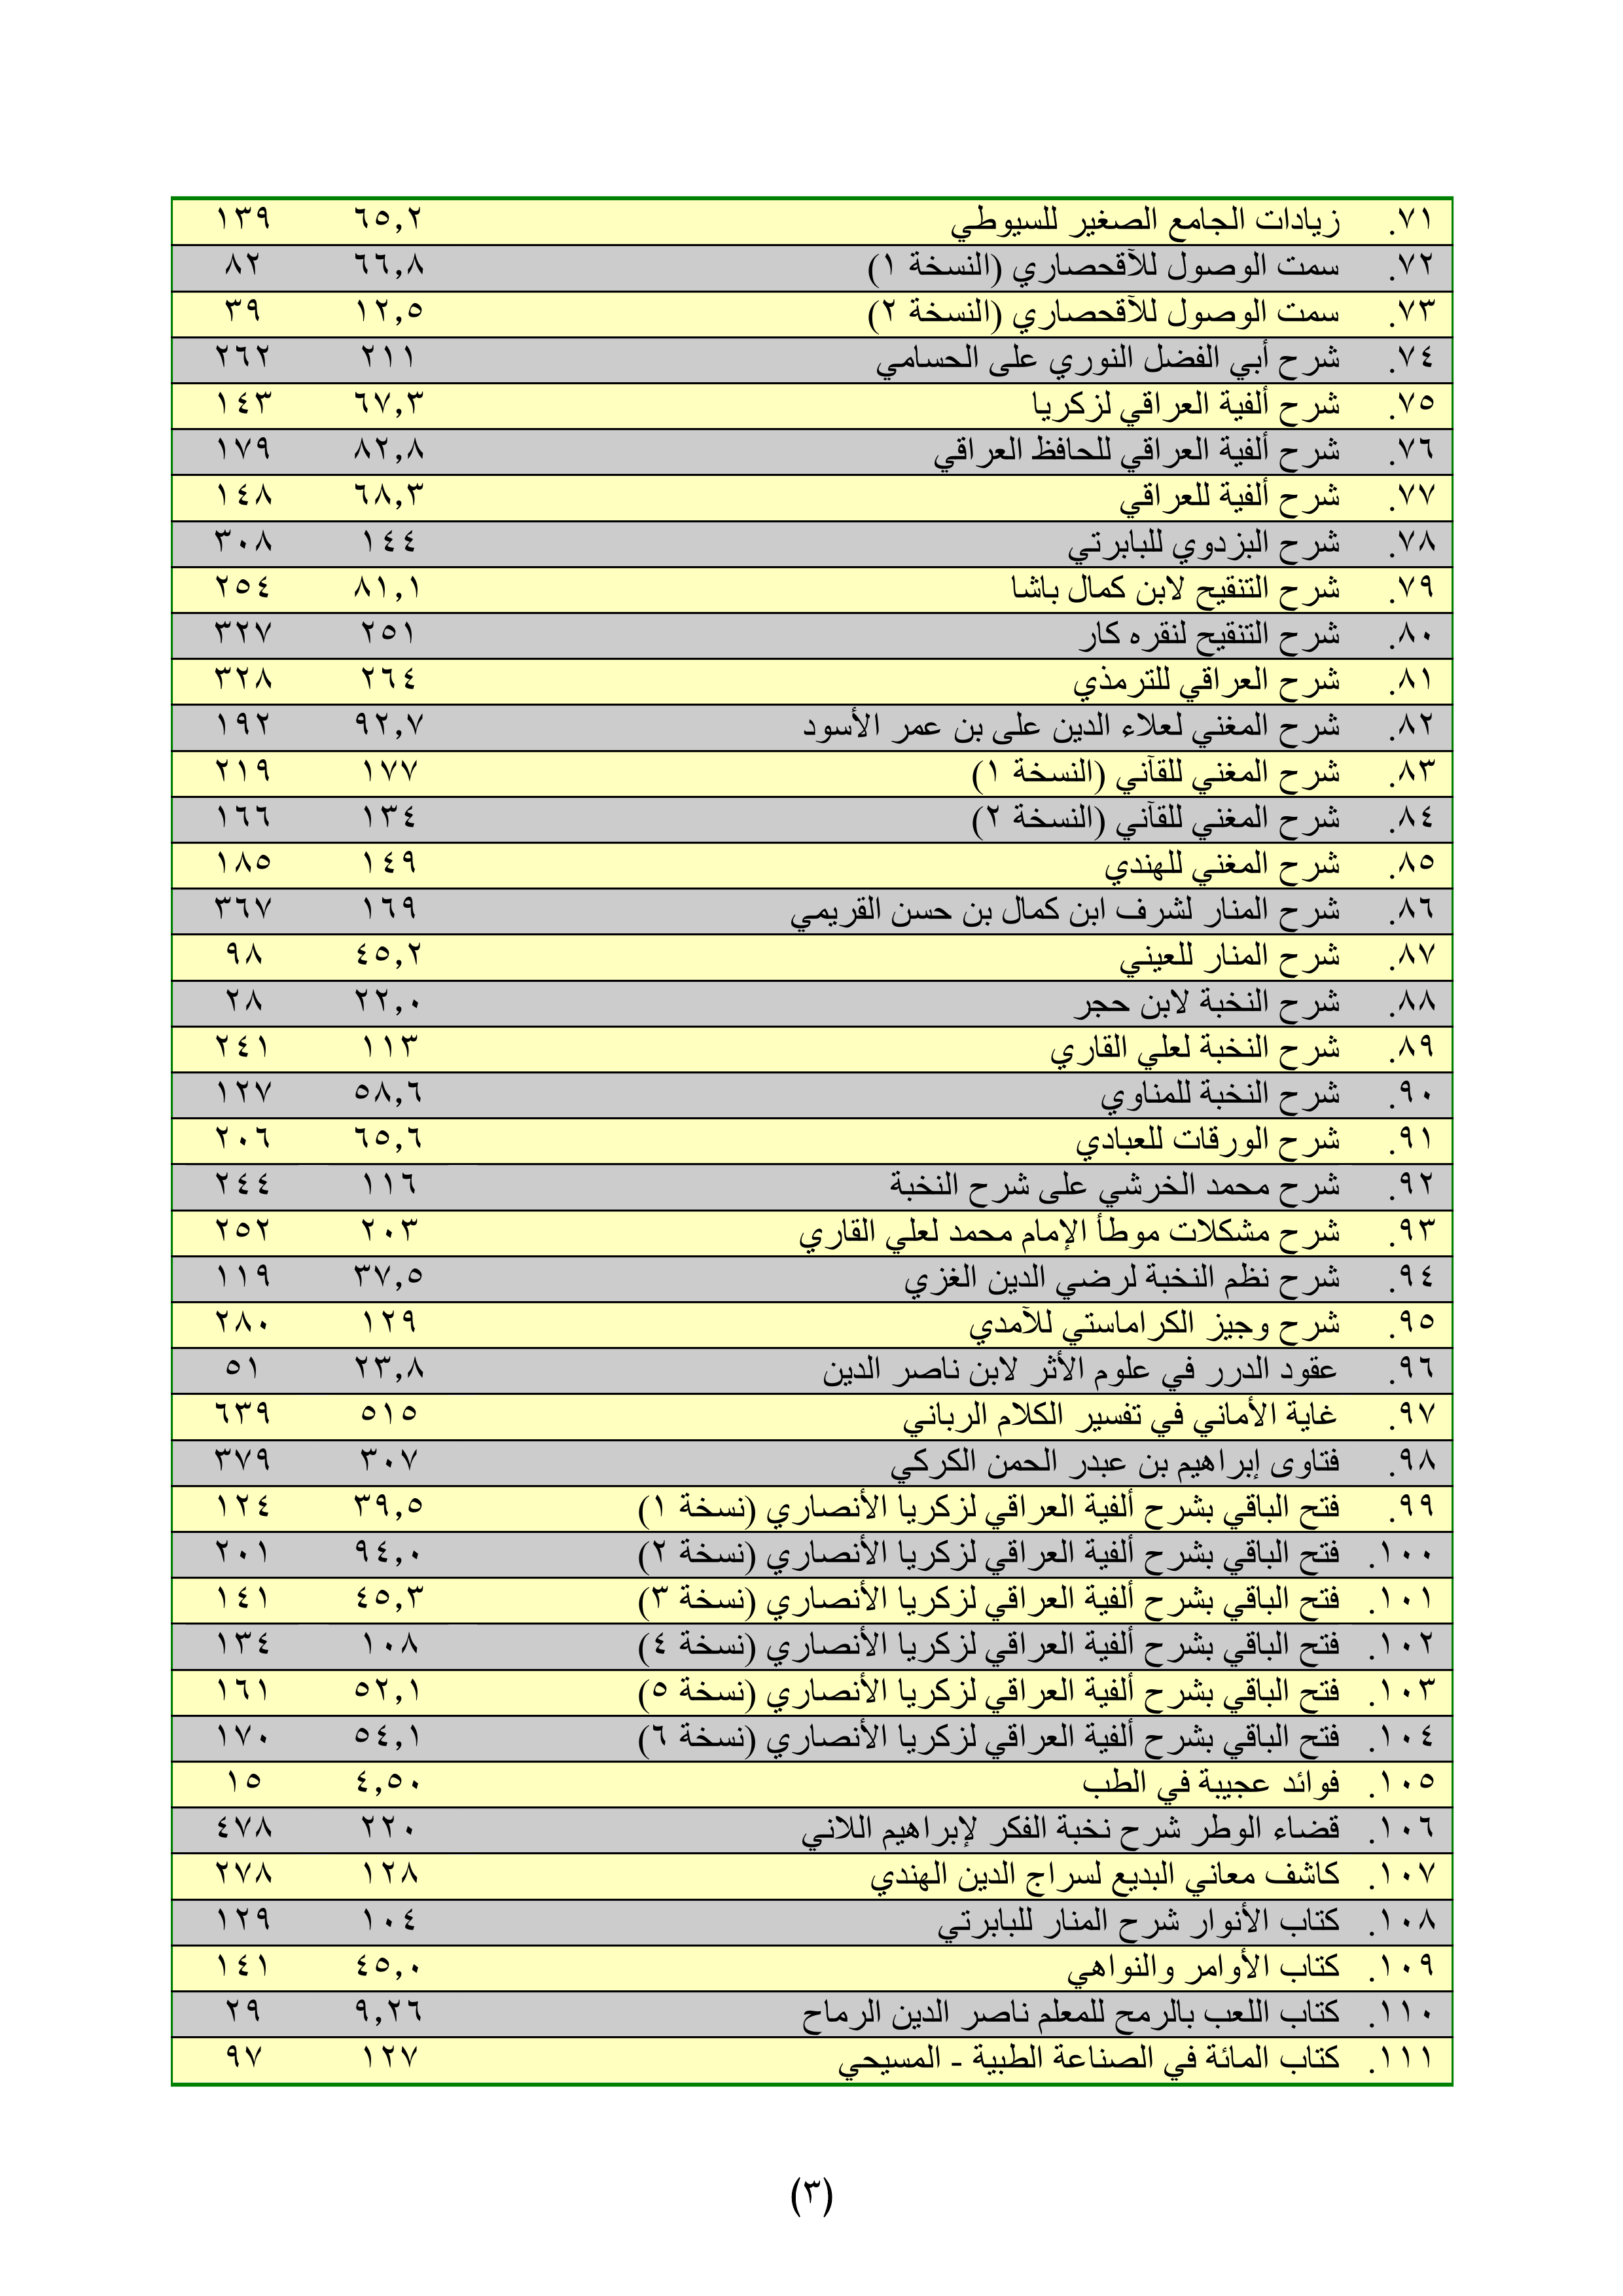 ٧١. زيادات الجامع الصغير للسيوطي ٦٥,٢ ١٣٩
٧٢. سمت الوصول للآقحصاري (النسخة ١) ٦٦,٨ ٨٢
٧٣. سمت الوصول للآقحصاري (النسخة ٢) ١٢,٥ ٣٩
٧٤. شرح أبي الفضل النوري على الحسامي ٢١١ ٢٦٢
٧٥. شرح ألفية العراقي لزكريا ٦٧,٣ ١٤٣
٧٦. شرح ألفية العراقي للحافظ العراقي ٨٢,٨ ١٧٩
٧٧. شرح ألفية للعراقي ٦٨,٣ ١٤٨
٧٨. شرح البزدوي للبابرتي ١٤٤ ٣٠٨
٧٩. شرح التنقيح لابن كمال باشا ٨١,١ ٢٥٤
٨٠. شرح التنقيح لنقره كار ٢٥١ ٣٢٧
٨١. شرح العراقي للترمذي ٢٦٤ ٣٢٨
٨٢. شرح المغني لعلاء الدين على بن عمر الأسود ٩٢,٧ ١٩٢
٨٣. شرح المغني للقآني (النسخة ١) ١٧٧ ٢١٩
٨٤. شرح المغني للقآني (النسخة ٢) ١٣٤ ١٦٦
٨٥. شرح المغني للهندي ١٤٩ ١٨٥
٨٦. شرح المنار لشرف ابن كمال بن حسن القريمي ١٦٩ ٣٦٧
٨٧. شرح المنار للعيني ٤٥,٢ ٩٨
٨٨. شرح النخبة لابن حجر ٢٢,٠ ٢٨
٨٩. شرح النخبة لعلي القاري ١١٣ ٢٤١
٩٠. شرح النخبة للمناوي ٥٨,٦ ١٢٧
٩١. شرح الورقات للعبادي ٦٥,٦ ٢٠٦
٩٢. شرح محمد الخرشي على شرح النخبة ١١٦ ٢٤٤
٩٣. شرح مشكلات موطأ الإمام محمد لعلي القاري ٢٠٣ ٢٥٢
٩٤. شرح نظم النخبة لرضي الدين الغزي ٣٧,٥ ١١٩
٩٥. شرح وجيز الكراماستي للآمدي ١٢٩ ٢٨٠
٩٦. عقود الدرر في علوم الأثر لابن ناصر الدين ٢٣,٨ ٥١
٩٧. غاية الأماني في تفسير الكلام الرباني ٥١٥ ٦٣٩
٩٨. فتاوى إبراهيم بن عبدر الحمن الكركي ٣٠٧ ٣٧٩
٩٩. فتح الباقي بشرح ألفية العراقي لزكريا الأنصاري (نسخة ١) ٣٩,٥ ١٢٤
١٠٠. فتح الباقي بشرح ألفية العراقي لزكريا الأنصاري (نسخة ٢) ٩٤,٠ ٢٠١
١٠١. فتح الباقي بشرح ألفية العراقي لزكريا الأنصاري (نسخة ٣) ٤٥,٣ ١٤١
١٠٢. فتح الباقي بشرح ألفية العراقي لزكريا الأنصاري (نسخة ٤) ١٠٨ ١٣٤
١٠٣. فتح الباقي بشرح ألفية العراقي لزكريا الأنصاري (نسخة ٥) ٥٢,١ ١٦١
١٠٤. فتح الباقي بشرح ألفية العراقي لزكريا الأنصاري (نسخة ٦) ٥٤,١ ١٧٠
١٠٥. فوائد عجيبة في الطب ٤,٥٠ ١٥
١٠٦. قضاء الوطر شرح نخبة الفكر لإبراهيم اللاني ٢٢٠ ٤٧٨
١٠٧. كاشف معاني البديع لسراج الدين الهندي ١٢٨ ٢٧٨
١٠٨. كتاب الأنوار شرح المنار للبابرتي ١٠٤ ١٢٩
١٠٩. كتاب الأوامر والنواهي ٤٥,٠ ١٤١
١١٠. كتاب اللعب بالرمح للمعلم ناصر الدين الرماح ٩,٢٦ ٢٩
١١١. كتاب المائة في الصناعة الطبية - المسيحي ١٢٧ ٩٧
(٣)